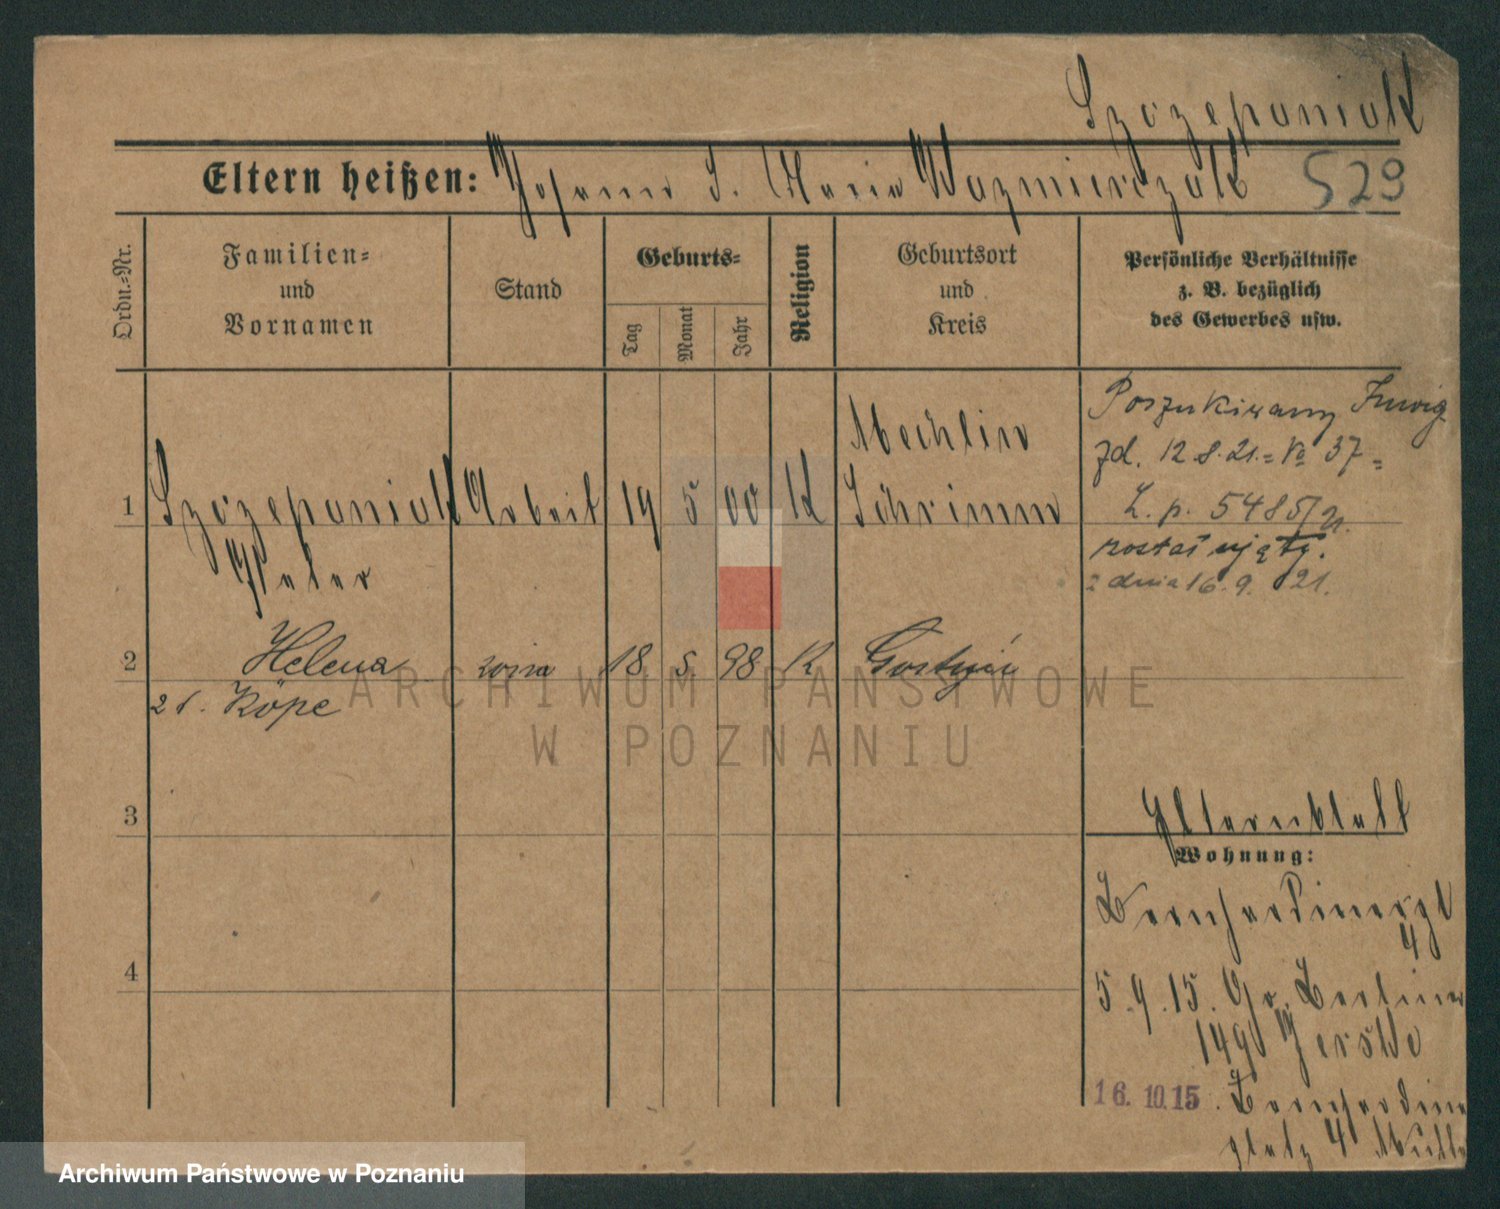 Szczepaniak
Eltern heißen: Johann u. Marie Kazmierczak 529
Ordn.-Nr.
Familien-
und
Vornamen
Stand
Geburts-
Tag
Monat
Jahr
Religion
Geburtsort
und
Kreis
Persönliche Verhältnisse
z. B. bezüglich
des Gewerbes usw.
1 Szczepaniak Arbeit 19 5 00 K Mechlin
Schrimm
Peter
Poszukiwany
zd. 12.8.21. = No 37 =
L. p. 5485/21.
został ujęty.
z dnia 16.9.21.
2 Helena żona 18 5 98 K Gostyń
z d. Köpe
3
Elternblatt
Wohnung:
4
Bernhardinerpl
4
5.9.15. Gr. Berliner
149 Gerske
16.10.15. Bernhardiner
platz 4
ARCHIWUM PAŃSTWOWE
W POZNANIU
Archiwum Państwowe w Poznaniu